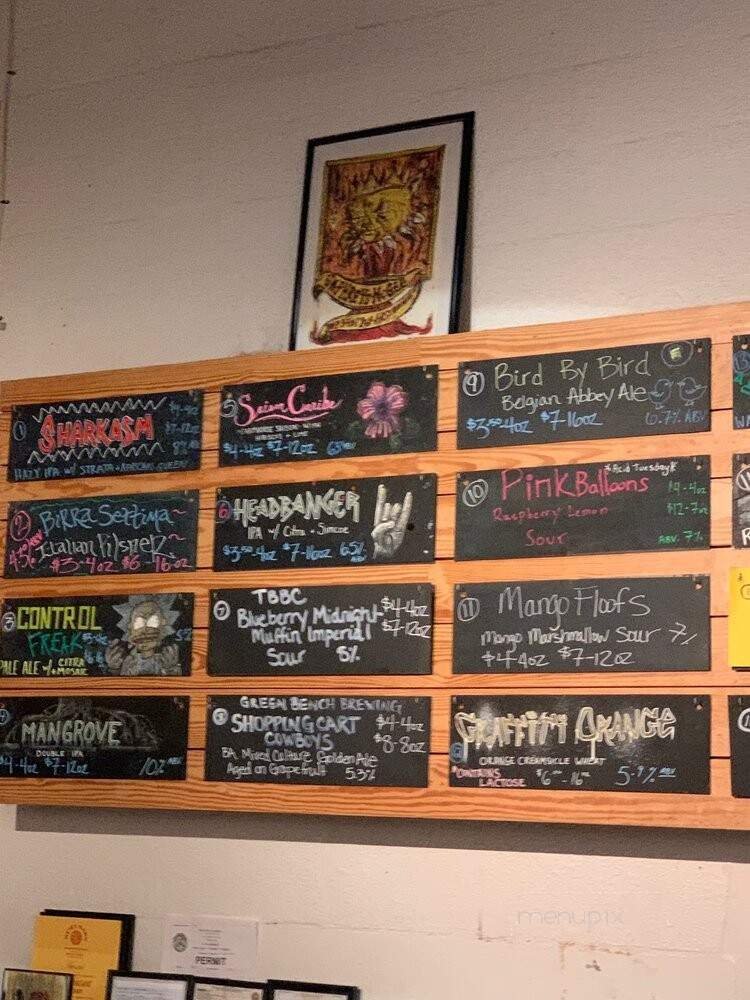 1
SHARKASM
$4-4oz
$7-12oz
HAZY IPA w/ STRATA + AFRICAN QUEEN
2
Birra Settima
Italian Pilsner
$3-4oz $6-16oz
3
CONTROL
FREAK
PALE ALE w/ CITRA
+ MOSAIC
5%
4
MANGROVE
DOUBLE IPA
$4-4oz $7-12oz 10% ABV
5
Saison Caribe
SAISON WITH
HIBISCUS + LIME
$4-4oz $7-12oz
6
HEADBANGER
IPA w/ Citra + Simcoe
$3.50 4oz $7-16oz 6.5% ABV
7
TBBC
Blueberry Midnight
Muffin Imperial
Sour 8%
$4-4oz
$7-12oz
8
GREEN BENCH BREWING
SHOPPING CART
COWBOYS
$4-4oz
$8-8oz
BA Mixed Culture Golden Ale
Aged on Grapefruit 5.3%
9
Bird By Bird
Belgian Abbey Ale
$3.50 4oz $7-16oz 6.7% ABV
10
*Acid Tuesday*
Pink Balloons
Raspberry Lemon
Sour
$4-4oz
ABV. 7%
11
Mango Floofs
Mango Marshmallow Sour 7%
$4-4oz $7-12oz
GRAFFITI ORANGE
ORANGE CREAMSICLE WHEAT
*CONTAINS
LACTOSE
5.9% ABV
PERMIT
menupix